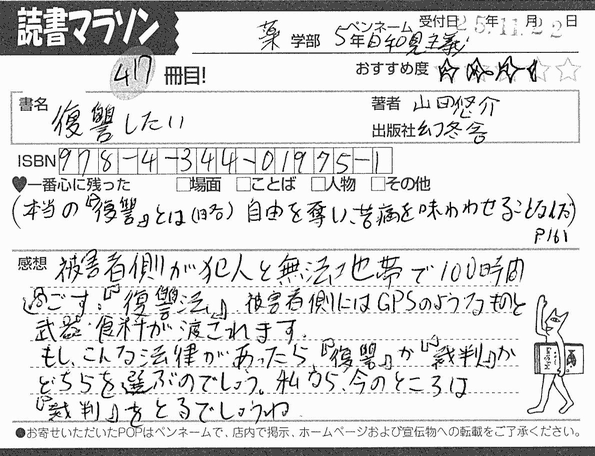 読書マラソン
417冊目!
薬 学部 ペンネーム 5年日和見主義 受付日 25年11月22日
おすすめ度 ☆☆☆☆☆
書名 復讐したい
著者 山田悠介
出版社 幻冬舎
ISBN 978-4-344-01975-1
♥一番心に残った □場面 □ことば □人物 □その他
(本当の『復讐』とは(略)自由を奪い、苦痛を味わわせること
P161
感想 被害者側が犯人と無法地帯で100時間
過ごす。『復讐法』 被害者側にはGPSのようなものと
武器・食料が渡されます。
もし、こんな法律があったら『復讐』か『裁判』か
どちらを選ぶのでしょう。私なら、今のところは
『裁判』をとるでしょうね
●お寄せいただいたPOPはペンネームで、店内で掲示、ホームページおよび宣伝物への転載をご了承ください。